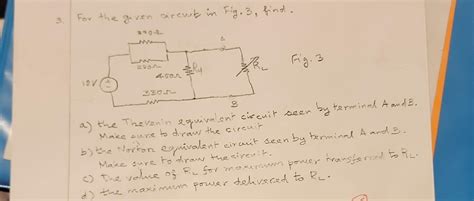 3. For the given circuit in Fig. 3, find.
A
Fig. 3
R4
RL
450Ω
10V
330Ω
B
a) the Thevenin equivalent circuit seen by terminal A and B.
Make sure to draw the circuit
b) the Norton equivalent circuit seen by terminal A and B.
Make sure to draw the circuit.
c) The value of RL for maximum power transferred to RL.
d) the maximum power delivered to RL.